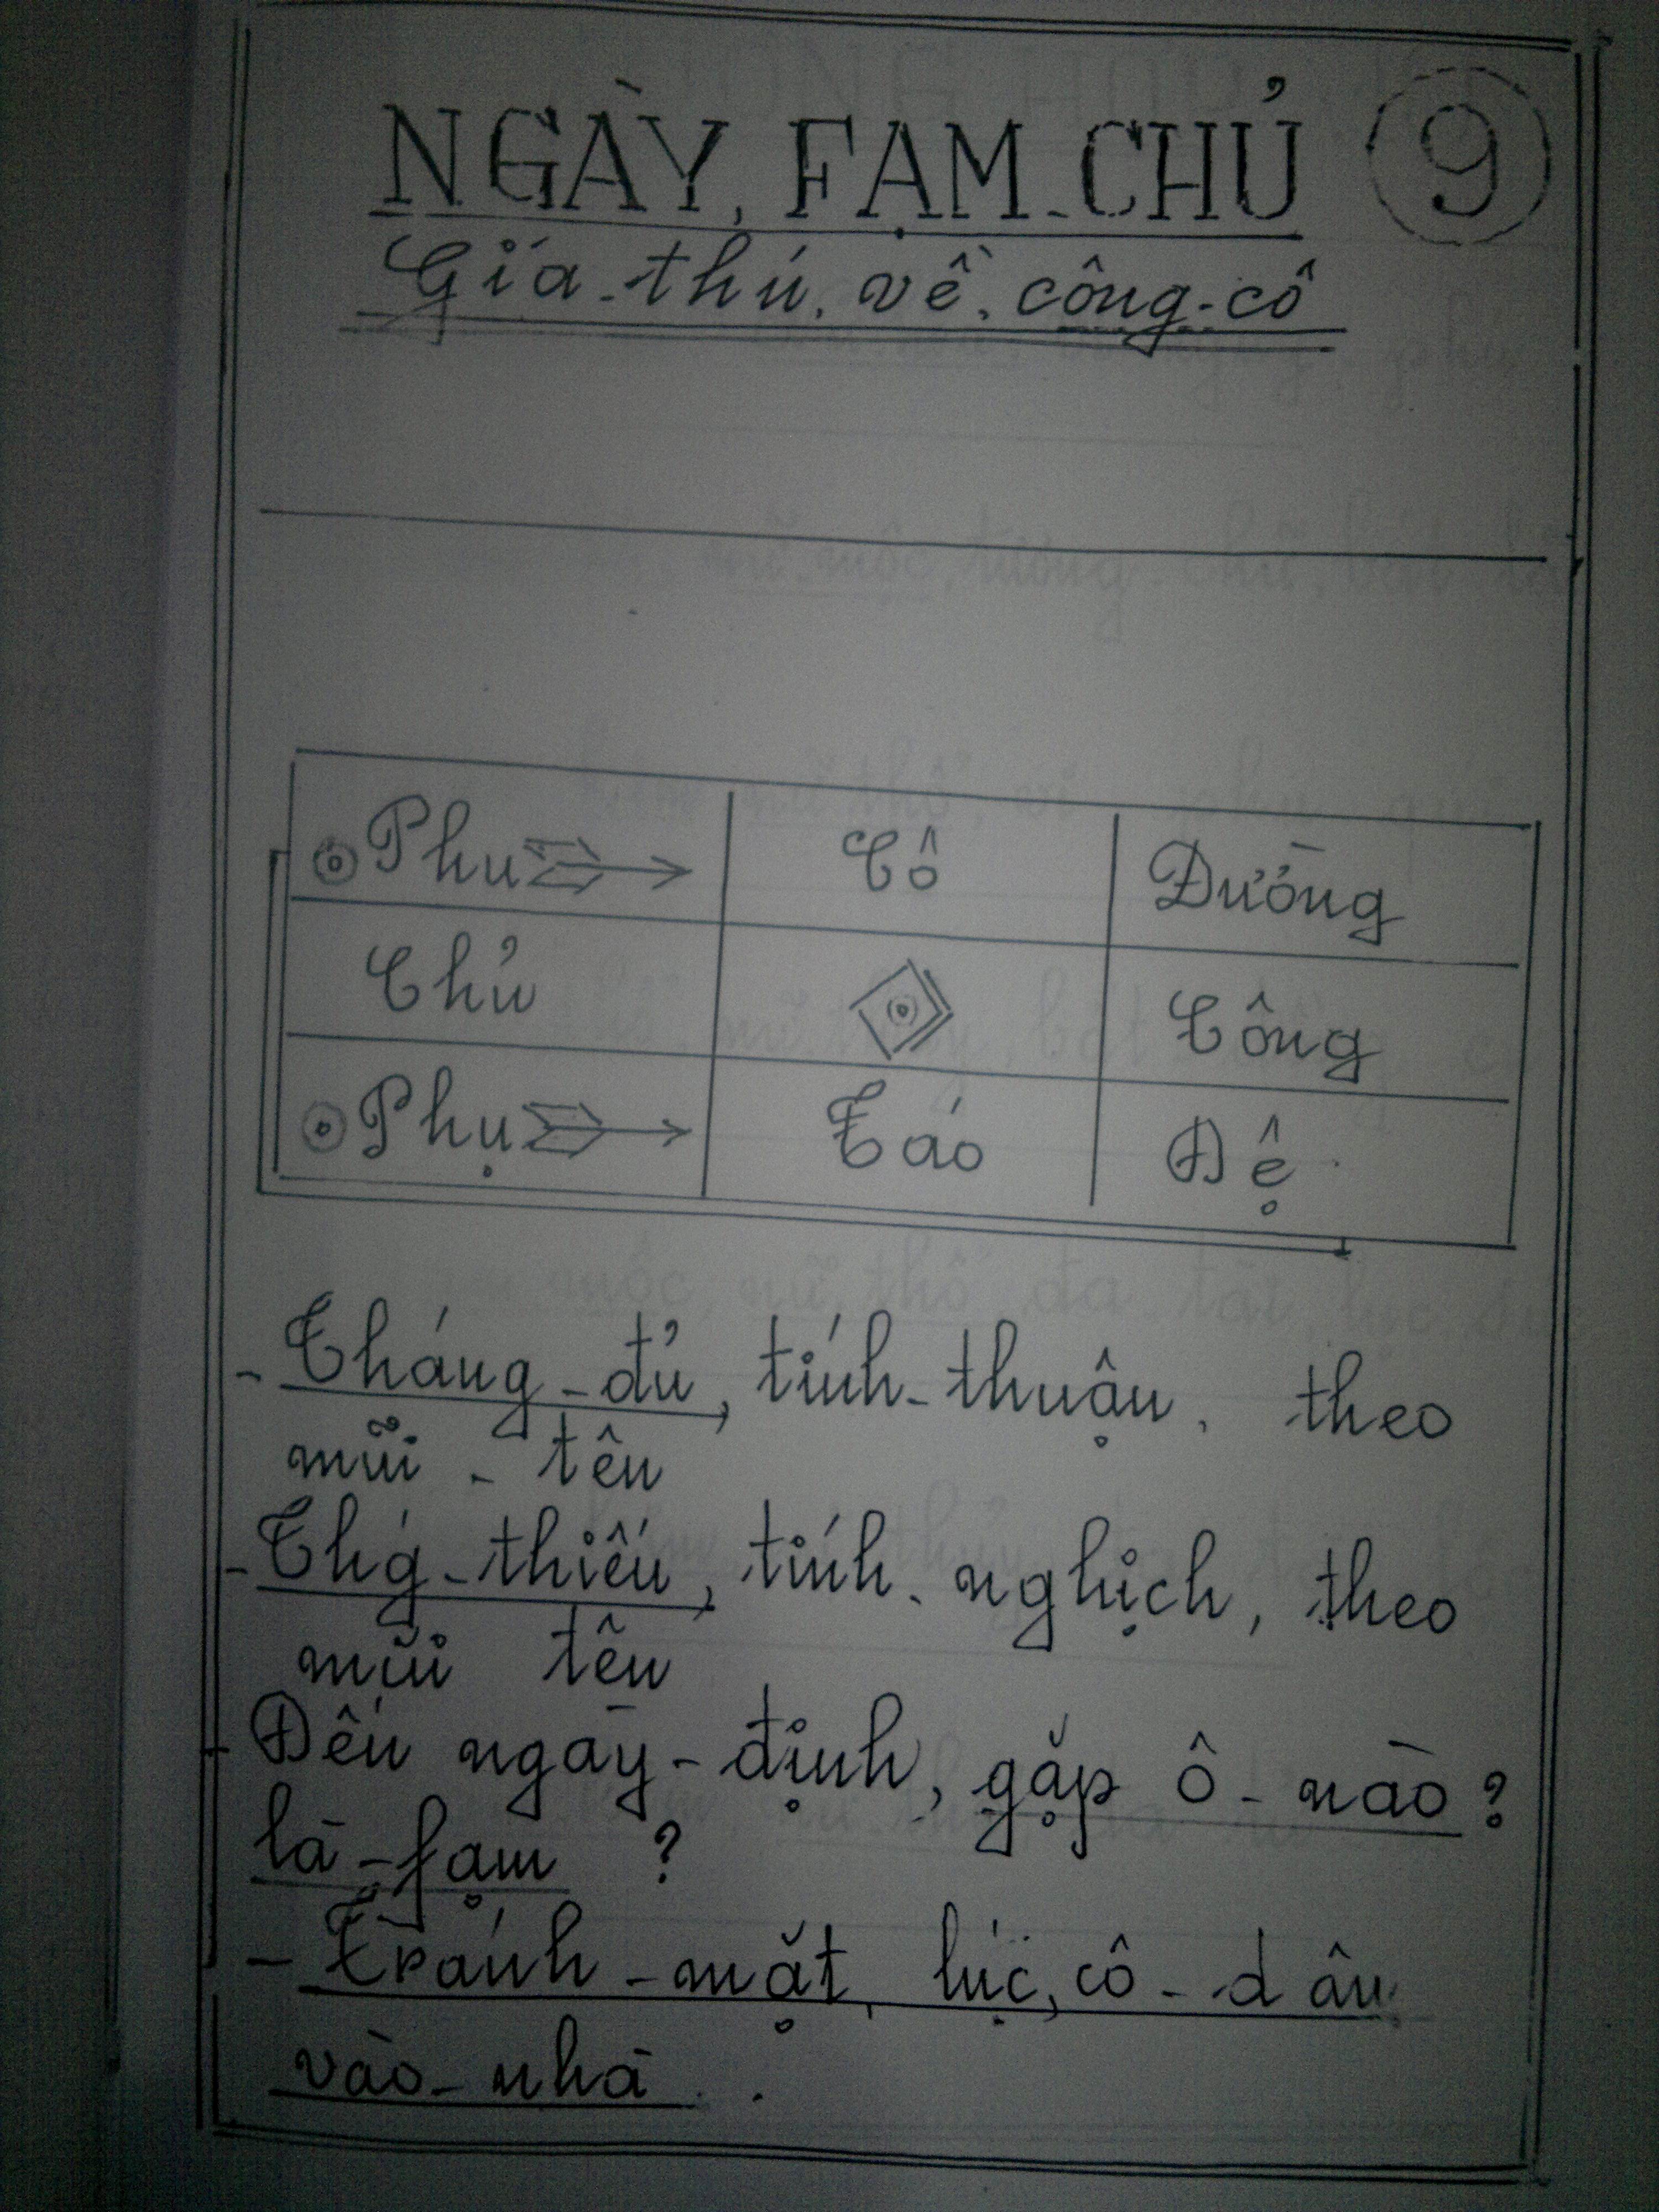 NGÀY, FẠM-CHỦ 9
Gía-thú, về, công-cô
Phu Cô Đường
Chủ Công
Phụ Táo Đệ
- Tháng-đủ, tính-thuận, theo
mũi - tên
- Thg-thiếu, tính-nghịch, theo
mũi tên
- Đến ngày-định, gặp ô-nào?
là-fạm ?
- Tránh-mặt, lúc, cô-dâu
vào-nhà .